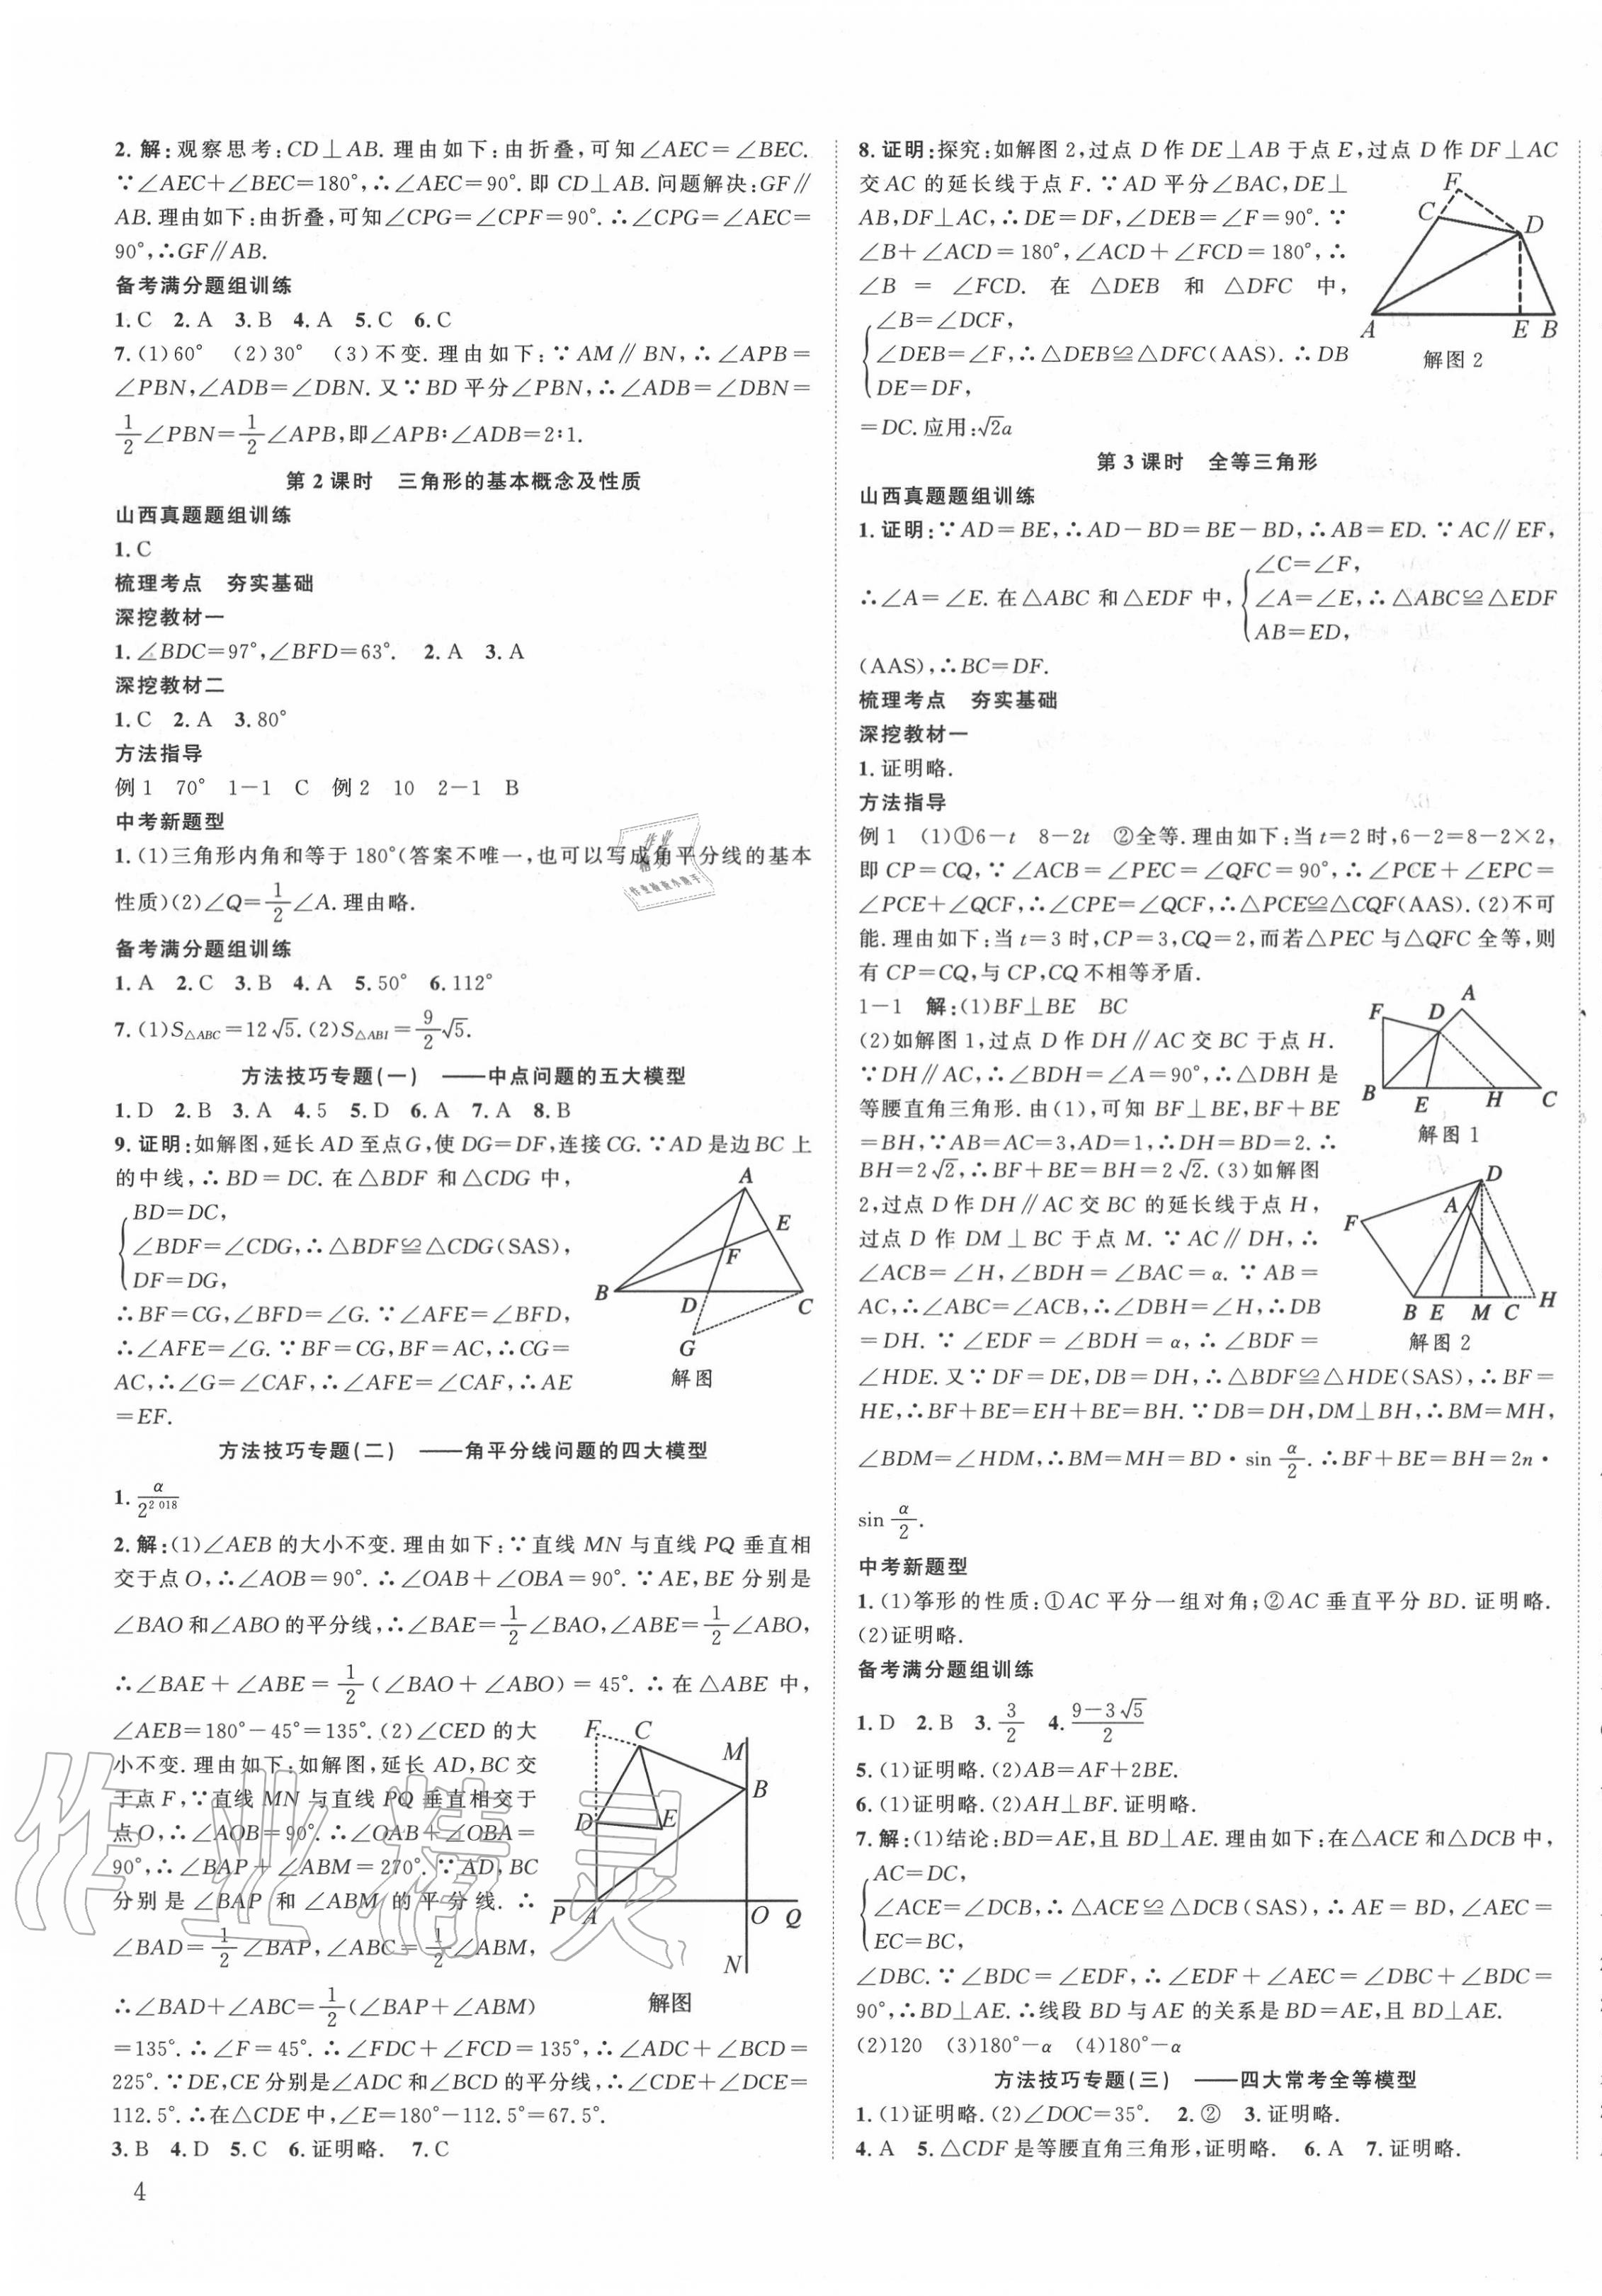 2.解:观察思考:CD⊥AB.理由如下:由折叠,可知∠AEC=∠BEC.
∵∠AEC+∠BEC=180°,∴∠AEC=90°.即CD⊥AB.问题解决:GF∥
AB.理由如下:由折叠,可知∠CPG=∠CPF=90°.∴∠CPG=∠AEC=
90°,∴GF∥AB.
备考满分题组训练
1.C 2.A 3.B 4.A 5.C 6.C
7.(1)60° (2)30° (3)不变.理由如下:∵AM∥BN,∴∠APB=
∠PBN,∠ADB=∠DBN.又∵BD平分∠PBN,∴∠ADB=∠DBN=
1/2∠PBN=1/2∠APB,即∠APB:∠ADB=2:1.
第2课时 三角形的基本概念及性质
山西真题题组训练
1.C
梳理考点 夯实基础
深挖教材一
1.∠BDC=97°,∠BFD=63°. 2.A 3.A
深挖教材二
1.C 2.A 3.80°
方法指导
例1 70° 1-1 C 例2 10 2-1 B
中考新题型
1.(1)三角形内角和等于180°(答案不唯一,也可以写成角平分线的基本
性质)(2)∠Q=1/2∠A.理由略.
备考满分题组训练
1.A 2.C 3.B 4.A 5.50° 6.112°
7.(1)S△ABC=12√5.(2)S△ABI=9/2√5.
方法技巧专题(一) ——中点问题的五大模型
1.D 2.B 3.A 4.5 5.D 6.A 7.A 8.B
9.证明:如解图,延长AD至点G,使DG=DF,连接CG.∵AD是边BC上
的中线,∴BD=DC.在△BDF和△CDG中,
BD=DC,
∠BDF=∠CDG,∴△BDF≌△CDG(SAS),
DF=DG,
∴BF=CG,∠BFD=∠G.∵∠AFE=∠BFD,
∴∠AFE=∠G.∵BF=CG,BF=AC,∴CG=
AC,∴∠G=∠CAF,∴∠AFE=∠CAF,∴AE
=EF.
A
E
F
B
D
C
G
解图
方法技巧专题(二) ——角平分线问题的四大模型
1.α/2^2 018
2.解:(1)∠AEB的大小不变.理由如下:∵直线MN与直线PQ垂直相
交于点O,∴∠AOB=90°.∴∠OAB+∠OBA=90°.∵AE,BE分别是
∠BAO和∠ABO的平分线,∴∠BAE=1/2∠BAO,∠ABE=1/2∠ABO,
∴∠BAE+∠ABE=1/2(∠BAO+∠ABO)=45°.∴在△ABE中,
∠AEB=180°-45°=135°.(2)∠CED的大
小不变.理由如下:如解图,延长AD,BC交
于点F,∵直线MN与直线PQ垂直相交于
点O,∴∠AOB=90°.∴∠OAB+∠OBA=
90°,∴∠BAP+∠ABM=270°.∵AD,BC
分别是∠BAP和∠ABM的平分线.∴
∠BAD=1/2∠BAP,∠ABC=1/2∠ABM,
∴∠BAD+∠ABC=1/2(∠BAP+∠ABM)
=135°.∴∠F=45°.∴∠FDC+∠FCD=135°,∴∠ADC+∠BCD=
225°.∵DE,CE分别是∠ADC和∠BCD的平分线,∴∠CDE+∠DCE=
112.5°.∴在△CDE中,∠E=180°-112.5°=67.5°.
F
C
M
B
D
E
P
A
O
Q
N
解图
3.B 4.D 5.C 6.证明略. 7.C
4
8.证明:探究:如解图2,过点D作DE⊥AB于点E,过点D作DF⊥AC
交AC的延长线于点F.∵AD平分∠BAC,DE⊥
AB,DF⊥AC,∴DE=DF,∠DEB=∠F=90°.∵
∠B+∠ACD=180°,∠ACD+∠FCD=180°,∴
∠B=∠FCD.在△DEB和△DFC中,
∠B=∠DCF,
∠DEB=∠F,∴△DEB≌△DFC(AAS).∴DB
DE=DF,
=DC.应用:√2a
F
C
D
A
E
B
解图2
第3课时 全等三角形
山西真题题组训练
1.证明:∵AD=BE,∴AD-BD=BE-BD,∴AB=ED.∵AC∥EF,
∠C=∠F,
∴∠A=∠E.在△ABC和△EDF中,∠A=∠E,∴△ABC≌△EDF
AB=ED,
(AAS),∴BC=DF.
梳理考点 夯实基础
深挖教材一
1.证明略.
方法指导
例1 (1)①6-t 8-2t ②全等.理由如下:当t=2时,6-2=8-2×2,
即CP=CQ,∵∠ACB=∠PEC=∠QFC=90°,∴∠PCE+∠EPC=
∠PCE+∠QCF,∴∠CPE=∠QCF,∴△PCE≌△CQF(AAS).(2)不可
能.理由如下:当t=3时,CP=3,CQ=2,而若△PEC与△QFC全等,则
有CP=CQ,与CP,CQ不相等矛盾.
1-1 解:(1)BF⊥BE BC
(2)如解图1,过点D作DH∥AC交BC于点H.
∵DH∥AC,∴∠BDH=∠A=90°,∴△DBH是
等腰直角三角形.由(1),可知BF⊥BE,BF+BE
=BH,∵AB=AC=3,AD=1,∴DH=BD=2.∴
BH=2√2,∴BF+BE=BH=2√2.(3)如解图
2,过点D作DH∥AC交BC的延长线于点H,
过点D作DM⊥BC于点M.∵AC∥DH,∴
∠ACB=∠H,∠BDH=∠BAC=α.∵AB=
AC,∴∠ABC=∠ACB,∴∠DBH=∠H,∴DB
=DH.∵∠EDF=∠BDH=α,∴∠BDF=
∠HDE.又∵DF=DE,DB=DH,∴△BDF≌△HDE(SAS),∴BF=
HE,∴BF+BE=EH+BE=BH.∵DB=DH,DM⊥BH,∴BM=MH,
∠BDM=∠HDM,∴BM=MH=BD·sin α/2.∴BF+BE=BH=2n·
sin α/2.
A
F
D
B
E
H
C
解图1
D
A
F
B
E
M
C
H
解图2
中考新题型
1.(1)筝形的性质:①AC平分一组对角;②AC垂直平分BD.证明略.
(2)证明略.
备考满分题组训练
1.D 2.B 3.3/2 4.(9-3√5)/2
5.(1)证明略.(2)AB=AF+2BE.
6.(1)证明略.(2)AH⊥BF.证明略.
7.解:(1)结论:BD=AE,且BD⊥AE.理由如下:在△ACE和△DCB中,
AC=DC,
∠ACE=∠DCB,∴△ACE≌△DCB(SAS),∴AE=BD,∠AEC=
EC=BC,
∠DBC.∵∠BDC=∠EDF,∴∠EDF+∠AEC=∠DBC+∠BDC=
90°,∴BD⊥AE.∴线段BD与AE的关系是BD=AE,且BD⊥AE.
(2)120 (3)180°-α (4)180°-α
方法技巧专题(三) ——四大常考全等模型
1.(1)证明略.(2)∠DOC=35°. 2.② 3.证明略.
4.A 5.△CDF是等腰直角三角形,证明略. 6.A 7.证明略.
作业精灵